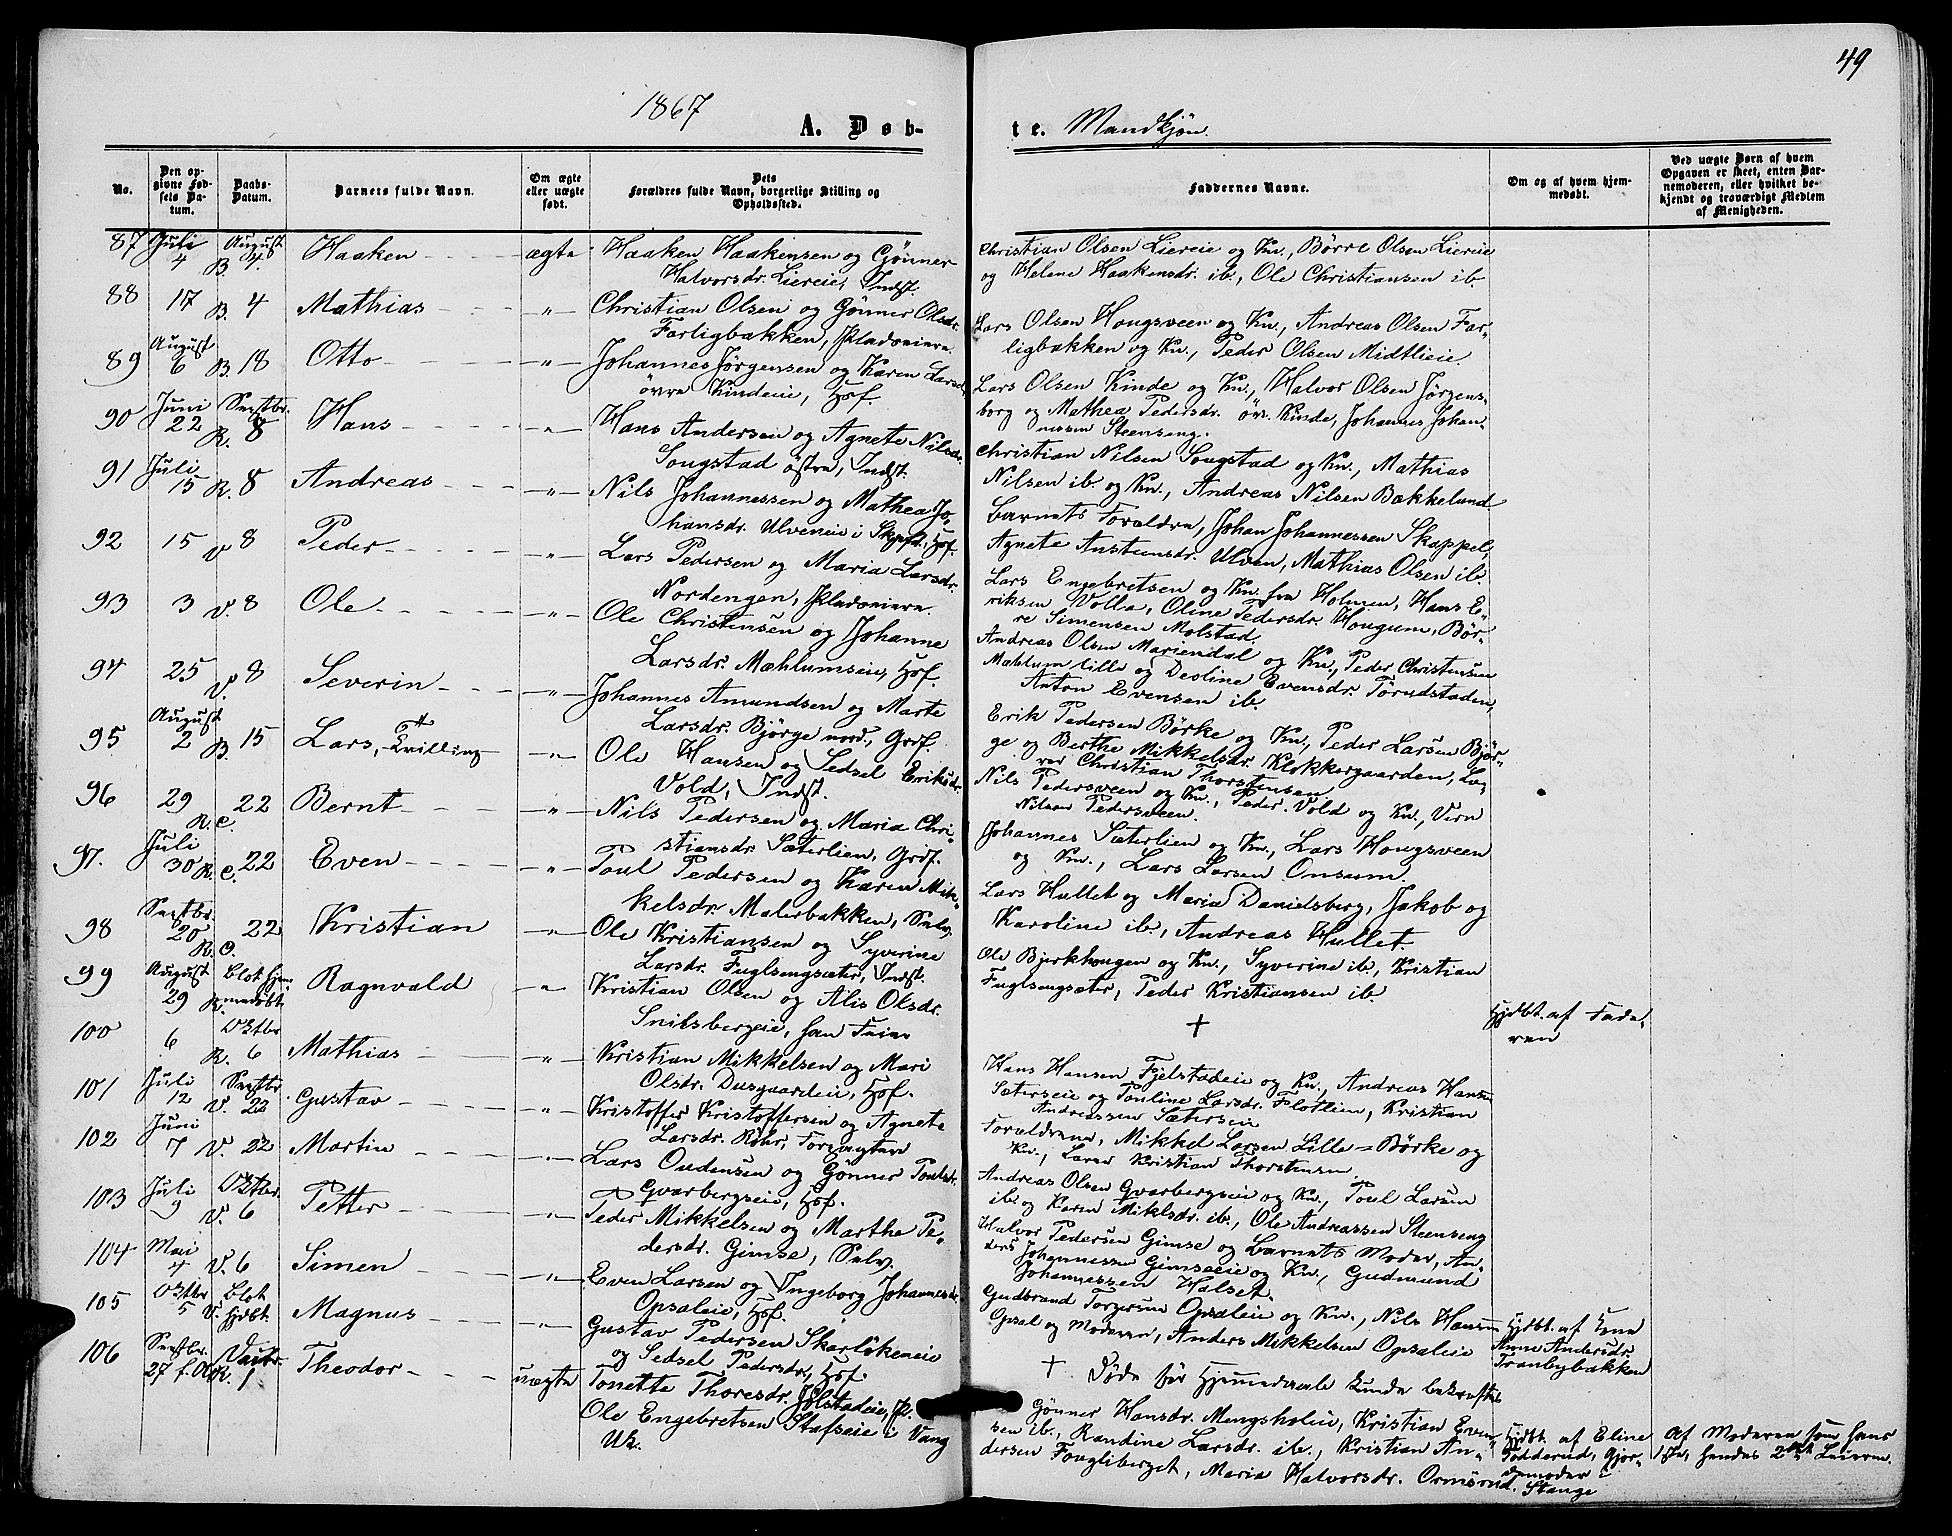 49
1867
A. Døb-
te. Mandkjøn.
No.
Den op-
givne Fød-
sels Da-
tum.
Daabs-
Datum.
Barnets fulde Navn.
Om ægte
eller uægte
født.
Dets
Forældres fulde Navn, borgerlige Stilling og
Opholdssted.
Faddernes Navne.
Om og af hvem hjem-
medøbt.
Ved uægte Børn af hvem
Opgaven er skeet, enten Bar-
nemoderen, eller hvilket be-
kjendt og troværdigt Medlem
af Menigheden.
87 Juli 4 August B. 4. Haaken ægte Haaken Haakensen og Gønner
Halvorsdr. Liereie, Indst.
Christian Olsen Liereie og Kn., Børre Olsen Liereie
og Helene Haakensdr. ib., Ole Christiansen ib.
88 17 B. 4 Mathias " Christian Olsen og Gønner Olsdr.
Farligbakken, Pladseiere.
Lars Olsen Hougsveen og Kn., Andreas Olsen Far-
ligbakken og Kn., Peder Olsen Midtlieie.
89 August 6 B. 18 Otto " Johannes Jørgensen og Karen Larsdr.
øvre Kindeie, Hsf.
Lars Olsen Kinde og Kn., Halvor Olsen Jørgens-
borg og Mathea Pedersdr. øvr. Kinde, Johannes Johan-
nessen Steenseng.
90 Juni 22 Septbr. R. 8 Hans " Hans Andersen og Agnete Nilsdr.
Sougstad østre, Indst.
Christian Nilsen Sougstad og Kn., Mathias
Nilsen ib. og Kn., Andreas Nilsen Bakkelund
91 Juli 15 R. 8 Andreas " Nils Johannessen og Mathea Jo-
hansdr. Ulveneie i Skpfd., Hsf.
Barnets Forældre, Johan Johannessen Skappel,
Agnete Anstensdr. Ulven, Mathias Olsen ib.
92 15 V. 8 Peder " Lars Pedersen og Maria Larsdr.
Nordengen, Pladseiere.
Lars Engebretsen og Kn. fra Holmen, Hans E-
riksen Volla, Oline Pedersdr. Hougum, Bør-
re Simensen Molstad.
93 3 V. 8 Ole " Ole Christensen og Johanne
Larsdr. Mæhlumseie, Hsf.
Andreas Olsen Mariendal og Kn., Peder Christensen
Mæhlum lille og Deoline Evensdr. Torudstaden,
Anton Evensen ib.
94 25 V. 8 Severin " Johannes Amundsen og Marte
Larsdr. Bjørge nord., Grf.
Erik Pedersen Børke og Kn., Peder Larsen Bjør-
ge og Berthe Mikkelsdr. Klokkergaarden, Læ-
rer Christian Thorstensen.
95 August 2 B. 15 Lars, Tvilling " Ole Hansen og Sedsel Eriksdr.
Vold, Indst.
Nils Pedersveen og Kn., Peder Vold og Kn., Vern
Nilsen Pedersveen.
96 29 R. C. 22 Bernt " Nils Pedersen og Maria Chri-
stiansdr. Sæterlien, Grf.
Johannes Sæterlien og Kn., Lars Hougsveen
og Kn., Lars Larsen Onsum.
97. Juli 30 R. C. 22 Even " Poul Pedersen og Karen Mik-
kelsdr. Malerbakken, Selv.
Lars Hullet og Maria Danielsberg, Jakob og
Karoline ib., Andreas Hullet.
98 Septbr. 20 R. C. 22 Kristian " Ole Kristiansen og Syverine
Larsdr. Fuglsengsæter, Indst.
Ole Bjerkhougen og Kn., Syverine ib., Kristian
Fuglsengsæter, Peder Kristiansen ib.
99 August 29 Blot hjem- R. medøbt Ragnvald " Kristian Olsen og Alis Olsdr.
Snilsbergeie, han Feier
+
Hjdbt. af Fade-
ren
100 6 Oktbr. R. 6 Mathias " Kristian Mikkelsen og Mari
Olsdr. Dusgaardeie, Hsf.
Hans Hansen Fjelstadeie og Kn., Andreas Hansen
Sæterseie og Pauline Larsdr. Flotlien, Kristian
Andreassen Sæterseie
101 Juli 12 Septbr. V. 22 Gustav " Kristoffer Kristoffersen og Agnete
Larsdr. Røhr, Forpagtere
Forældrene, Mikkel Larsen Lille-Børke og
Kn., Lærer Kristian Thorstensen.
102 Juni 7 V. 22 Martin " Lars Oudensen og Gønner Poulsdr.
Gvarbergseie, Hsf.
Andreas Olsen Gvarbergseie og Kn., Poul Larsen
ib. og Karen Miklsdr. ib., Ole Andreassen Steenseng
103 Juli 9 Oktbr. V. 6 Petter " Peder Mikkelsen og Marthe Pe-
dersdr. Gimse, Selv.
Halvor Pedersen Gimse og Barnets Moder, An-
ders Johannessen Gimseeie og Kn., Gudmund
Johannessen Halset.
104 Mai 4 V. 6 Simen " Even Larsen og Ingeborg Johannesdr.
Opsaleie, Hsf.
Gudbrand Torgersen Opsaleie og Kn., Nils Hansen
Opsal og Moderen, Anders Mikkelsen Opsaleie
105 Oktbr. 5 Blot V. Hjdbt. Magnus " Gustav Pedersen Skarløkeneie
og Sedsel Pedersdr., Hsf.
+ Døde før Hjemmedaab kunde bekræftes
Hjdbt. af Kone
Anne Andersdr.
Tranbybakken
106 Septbr. 27 R. 1 Theodor uægte Tonette Thoresdr. Jølstadeie, P.
Ole Engebretsen Stafseie i Vang
Uk.
Gønner Hansdr. Mengsholeie, Kristian Even-
sen ib., Randine Larsdr. ib., Kristian An-
dersen Fougliberget, Maria Halvorsdr. Ormsrud.
Hjdbt. af Eline
Todderud, Gjor-
demoder i
Stange
Af Moderen som hans
1ste, hendes 2det Leierm.